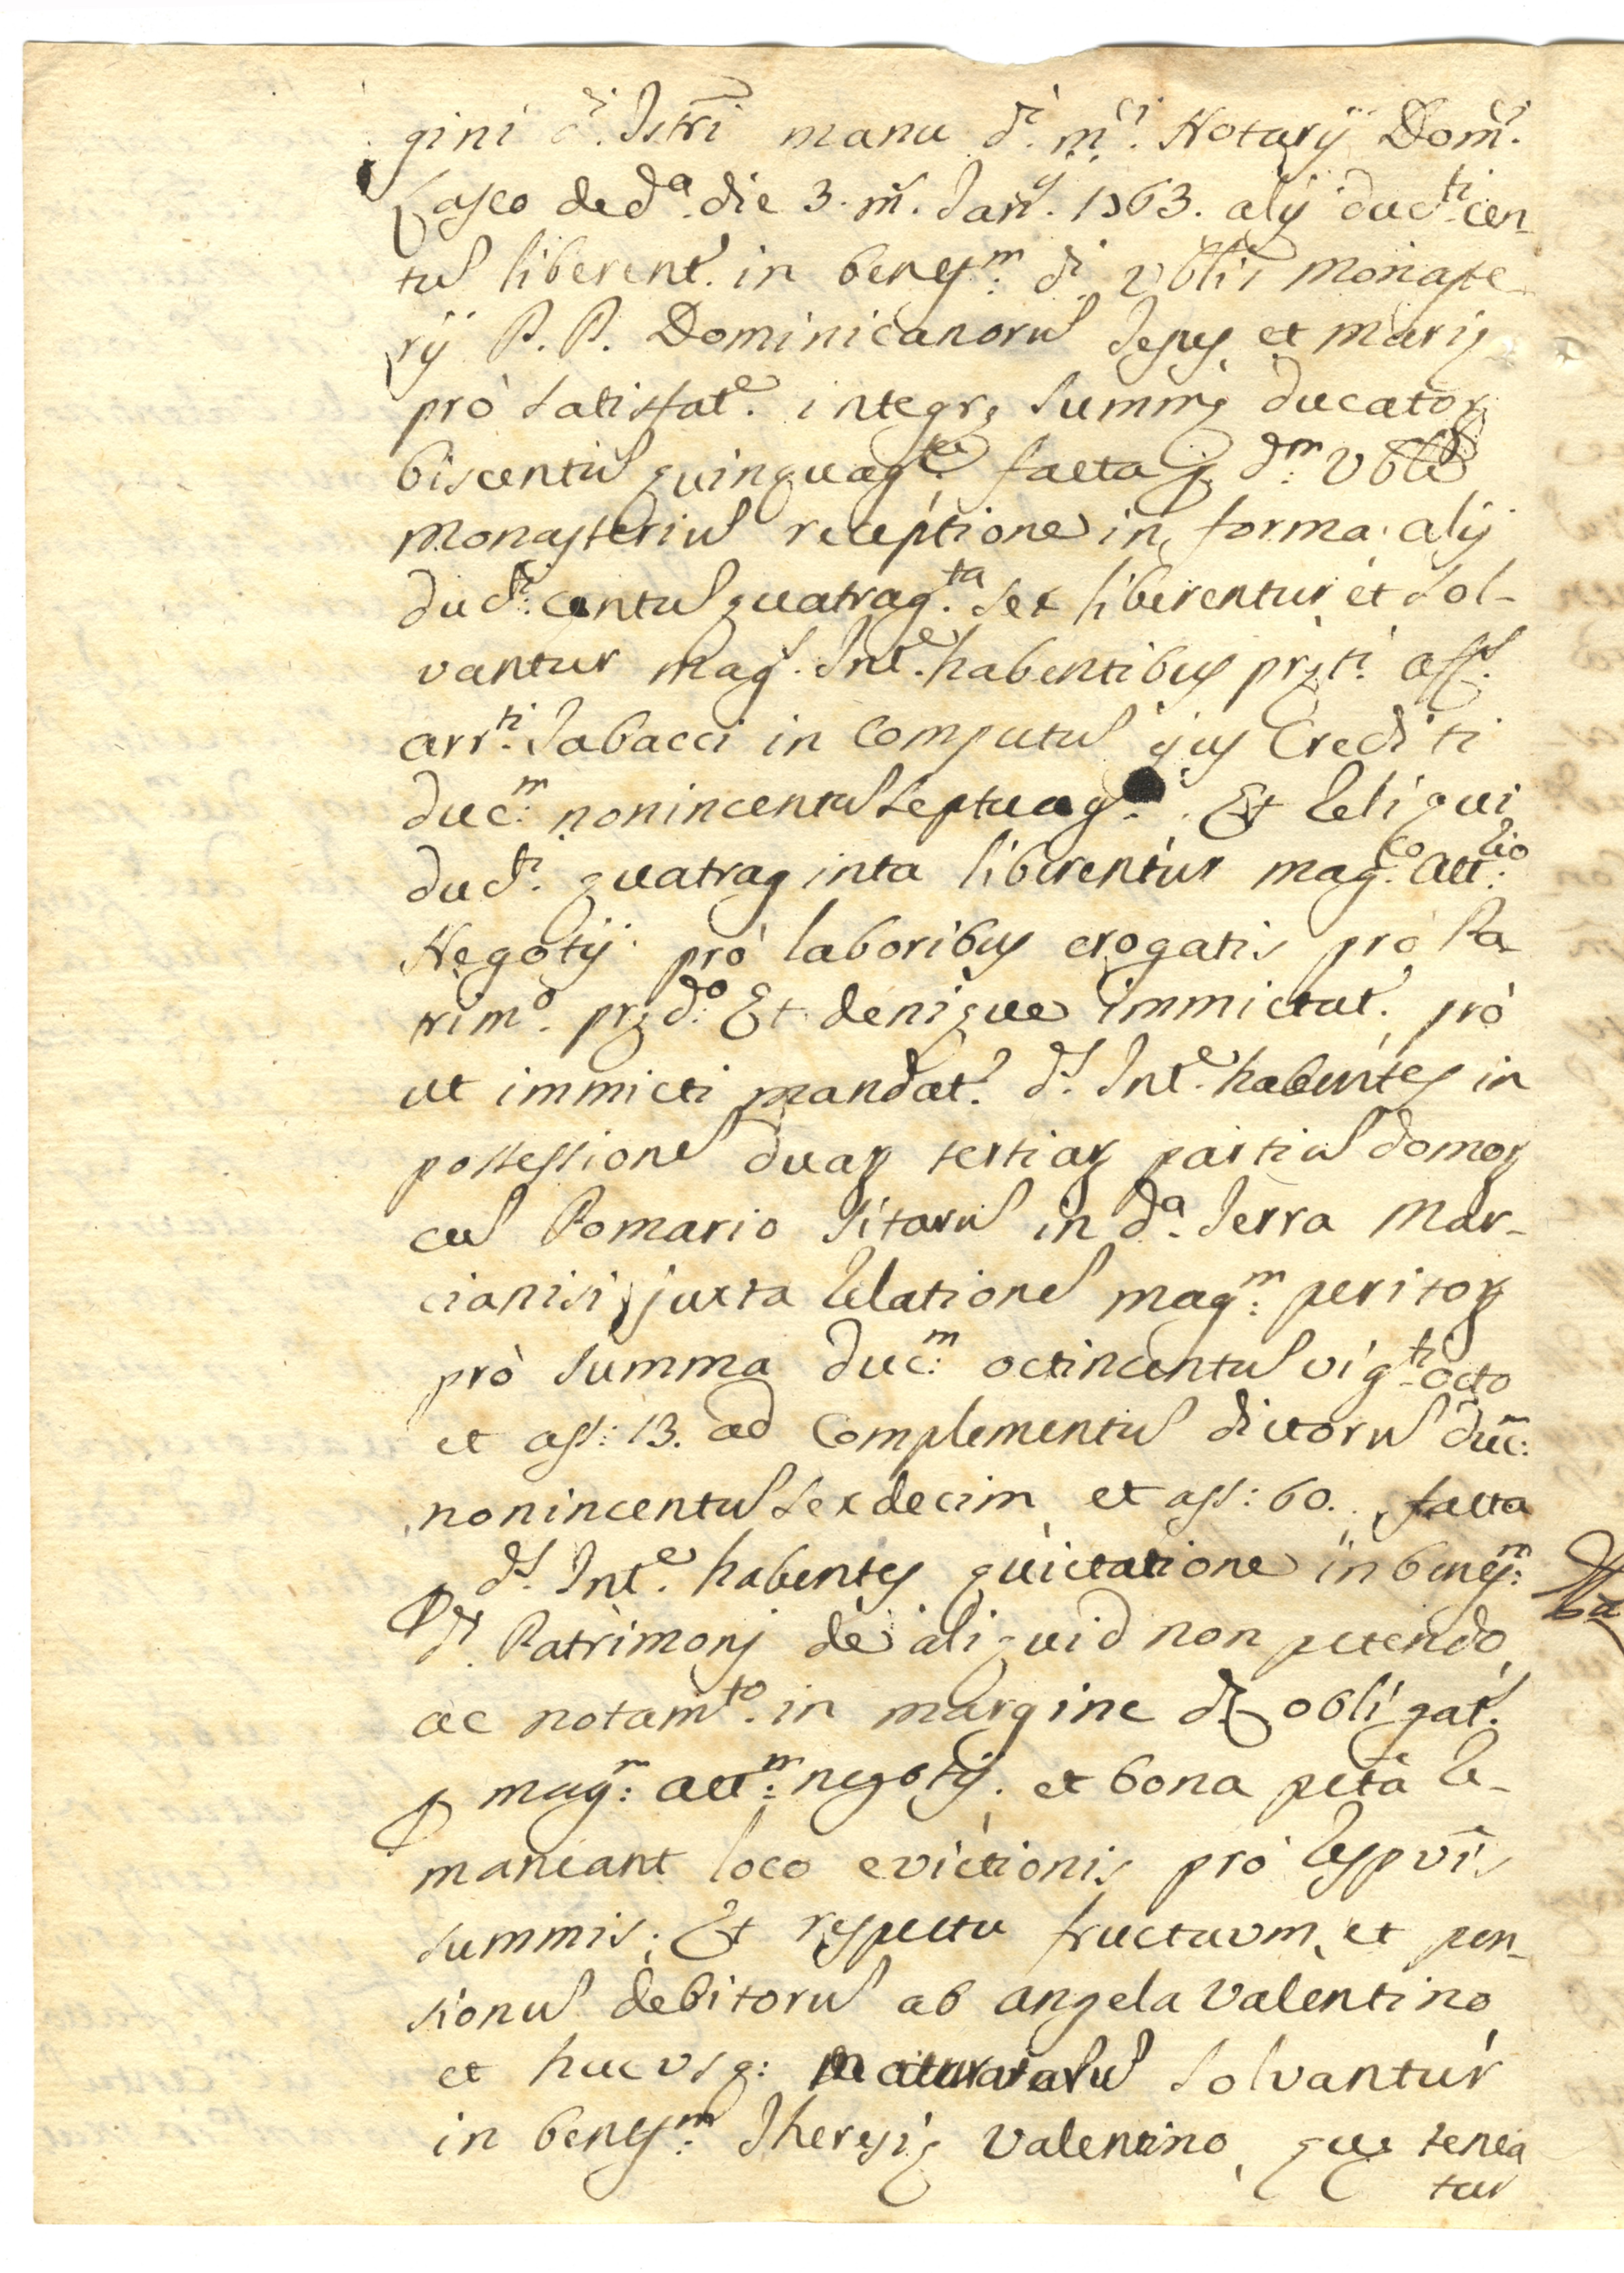 gini d.i Istri manu d.i m.ci Notarij Dom.ci
Casco de d.a die 3. m. Jan.y 1763. alij duc.ti cen-
tum liberent. in benef.m d.i Vblis monaste-
rij P. P. Dominicanorum Jesus et mariȩ
prò satisfat.e integrȩ summȩ ducator.
biscentum quinquag.ta facta p. d.m Vble
monasterium receptione in forma: alij
duc.ti centum quatrag.ta sex liberentur et sol-
vantur mag. Int.e habentibus prȩti. aff.
arr.ti Tabacci in computum ejus Crediti
duc.m nonincentum septuag. . Et reliqui
duc.ti quatraginta liberentur mag.co act.rio
Negotij prò laboribus erogatis prò Pa-
trim.o prȩd.o Et denique immictat. prò
ut immicti mandat. d. Int.e habentes in
possessionem duar. tertiar. partium domor.
cum Pomario sitarum in d.a Terra Mar-
cianisi juxta relationem mag.m peritor.
prò summa duc.m octincentum vig.ti octo
et ass: 13. ad complementum dictorum duc:
nonincentum sexdecim et ass: 60. facta
p d. Int.e habentes quictatione in benef.m
d. Patrimonj de aliquid non petendo,
ac notam.to in margine d. obligat.
p mag.m act.m negotij. et bona petã re-
maneant loco evictionis prò respvis
summis; Et respectu fructuum, et pen-
sionum debitorum ab angela Valentino
et huc usq: maturatarum solvantur
in benef.m Theresiȩ Valentino, quȩ tenea
tur